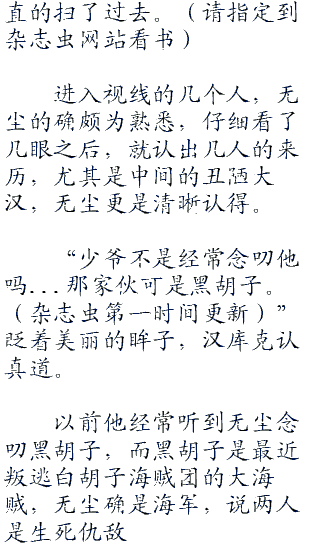 直的扫了过去。（请指定到
杂志虫网站看书）
进入视线的几个人，无
尘的确颇为熟悉，仔细看了
几眼之后，就认出几人的来
历，尤其是中间的丑陋大
汉，无尘更是清晰认得。
“少爷不是经常念叨他
吗...那家伙可是黑胡子。
（杂志虫第一时间更新）”
眨着美丽的眸子，汉库克认
真道。
以前他经常听到无尘念
叨黑胡子，而黑胡子是最近
叛逃白胡子海贼团的大海
贼，无尘确是海军，说两人
是生死仇敌